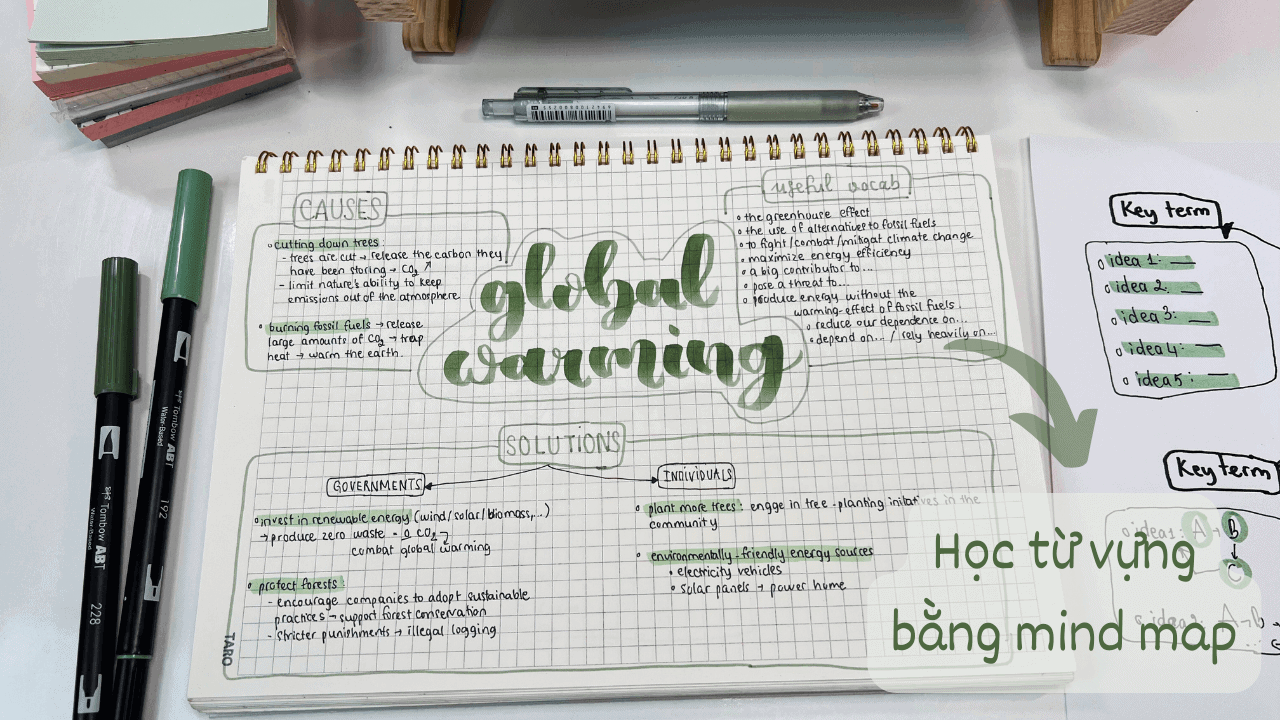 CAUSES
cutting down trees:
- trees are cut → release the carbon they
have been storing → CO₂ ↗
- limit nature's ability to keep
emissions out of the atmosphere.
burning fossil fuels → release
large amounts of CO₂ → trap
heat → warm the earth.
global
warming
useful vocab
the greenhouse effect
the use of alternatives to fossil fuels
to fight/combat/mitigat climate change
maximize energy efficiency
a big contributor to...
pose a threat to...
produce energy without the
warming-effect of fossil fuels
reduce our dependence on...
depend on... / rely heavily on...
SOLUTIONS
GOVERNMENTS
invest in renewable energy (wind/solar/biomass,...)
→ produce zero waste
CO₂
combat global warming
protect forests:
- encourage companies to adopt sustainable
practices → support forest conservation
- stricter punishments → illegal logging
INDIVIDUALS
plant more trees: engge in tree-planting initiatives in the
community
environmentally-friendly energy sources
electricity vehicles
solar panels → power home
TARO
Tombow ABT
Water-Based
228
Tombow ABT
Water-Based
192
Key term
idea 1:
idea 2:
idea 3:
idea 4:
idea 5:
Key term
idea 1: A → B
C
A → b
Học từ vựng
bằng mind map